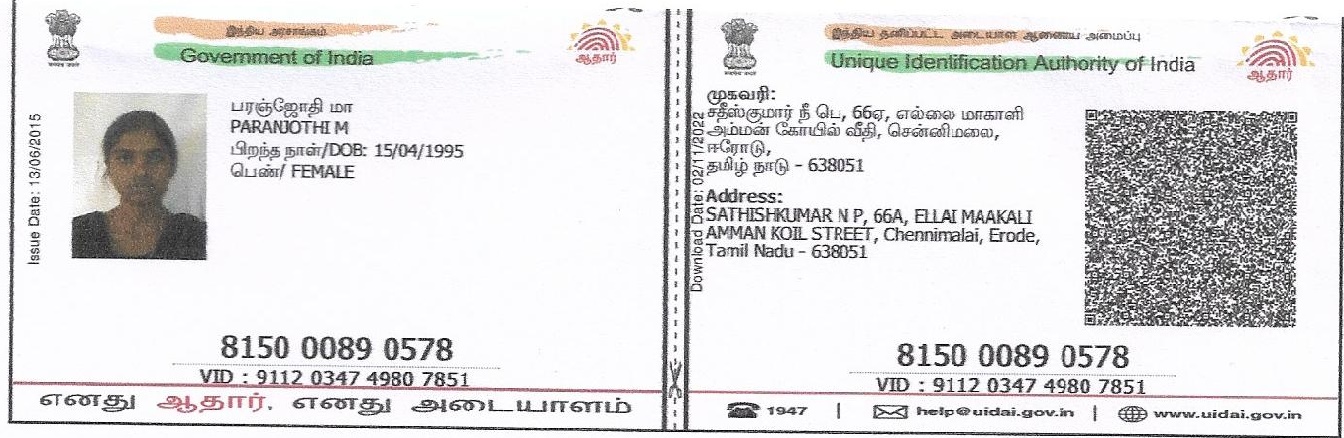 இந்திய அரசாங்கம்
Government of India
ஆதார்
Issue Date: 13/06/2015
பரஞ்ஜோதி மா
PARANJOTHI M
பிறந்த நாள்/DOB: 15/04/1995
பெண்/ FEMALE
8150 0089 0578
VID : 9112 0347 4980 7851
எனது ஆதார், எனது அடையாளம்
இந்திய தனிப்பட்ட அடையாள ஆணைய அமைப்பு
Unique Identification Authority of India
ஆதார்
Download Date: 02/11/2022
முகவரி:
சதீஸ்குமார் நீ டெ, 66ஏ, எல்லை மாகாளி
அம்மன் கோயில் வீதி, சென்னிமலை,
ஈரோடு,
தமிழ் நாடு - 638051
Address:
SATHISHKUMAR N P, 66A, ELLAI MAAKALI
AMMAN KOIL STREET, Chennimalai, Erode,
Tamil Nadu - 638051
8150 0089 0578
VID : 9112 0347 4980 7851
1947 | help@uidai.gov.in | www.uidai.gov.in